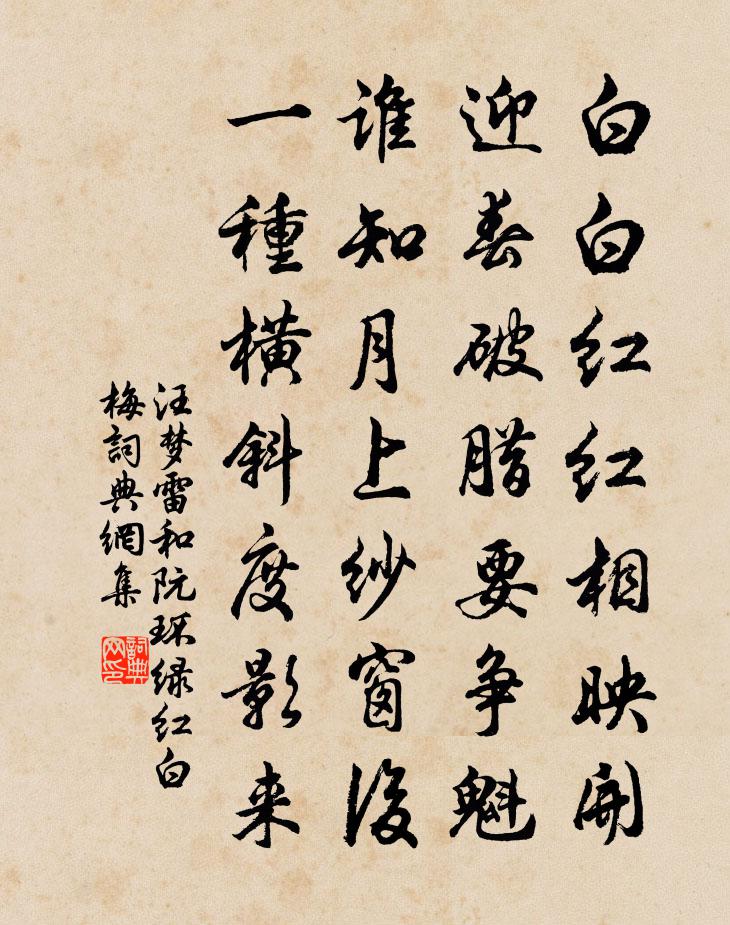 白白红红相映開
迎春破腊要争魁
谁知月上纱窗後
一種横斜度影来
汪梦雷和阮环绿红白
梅詞典網集
詞典
网印